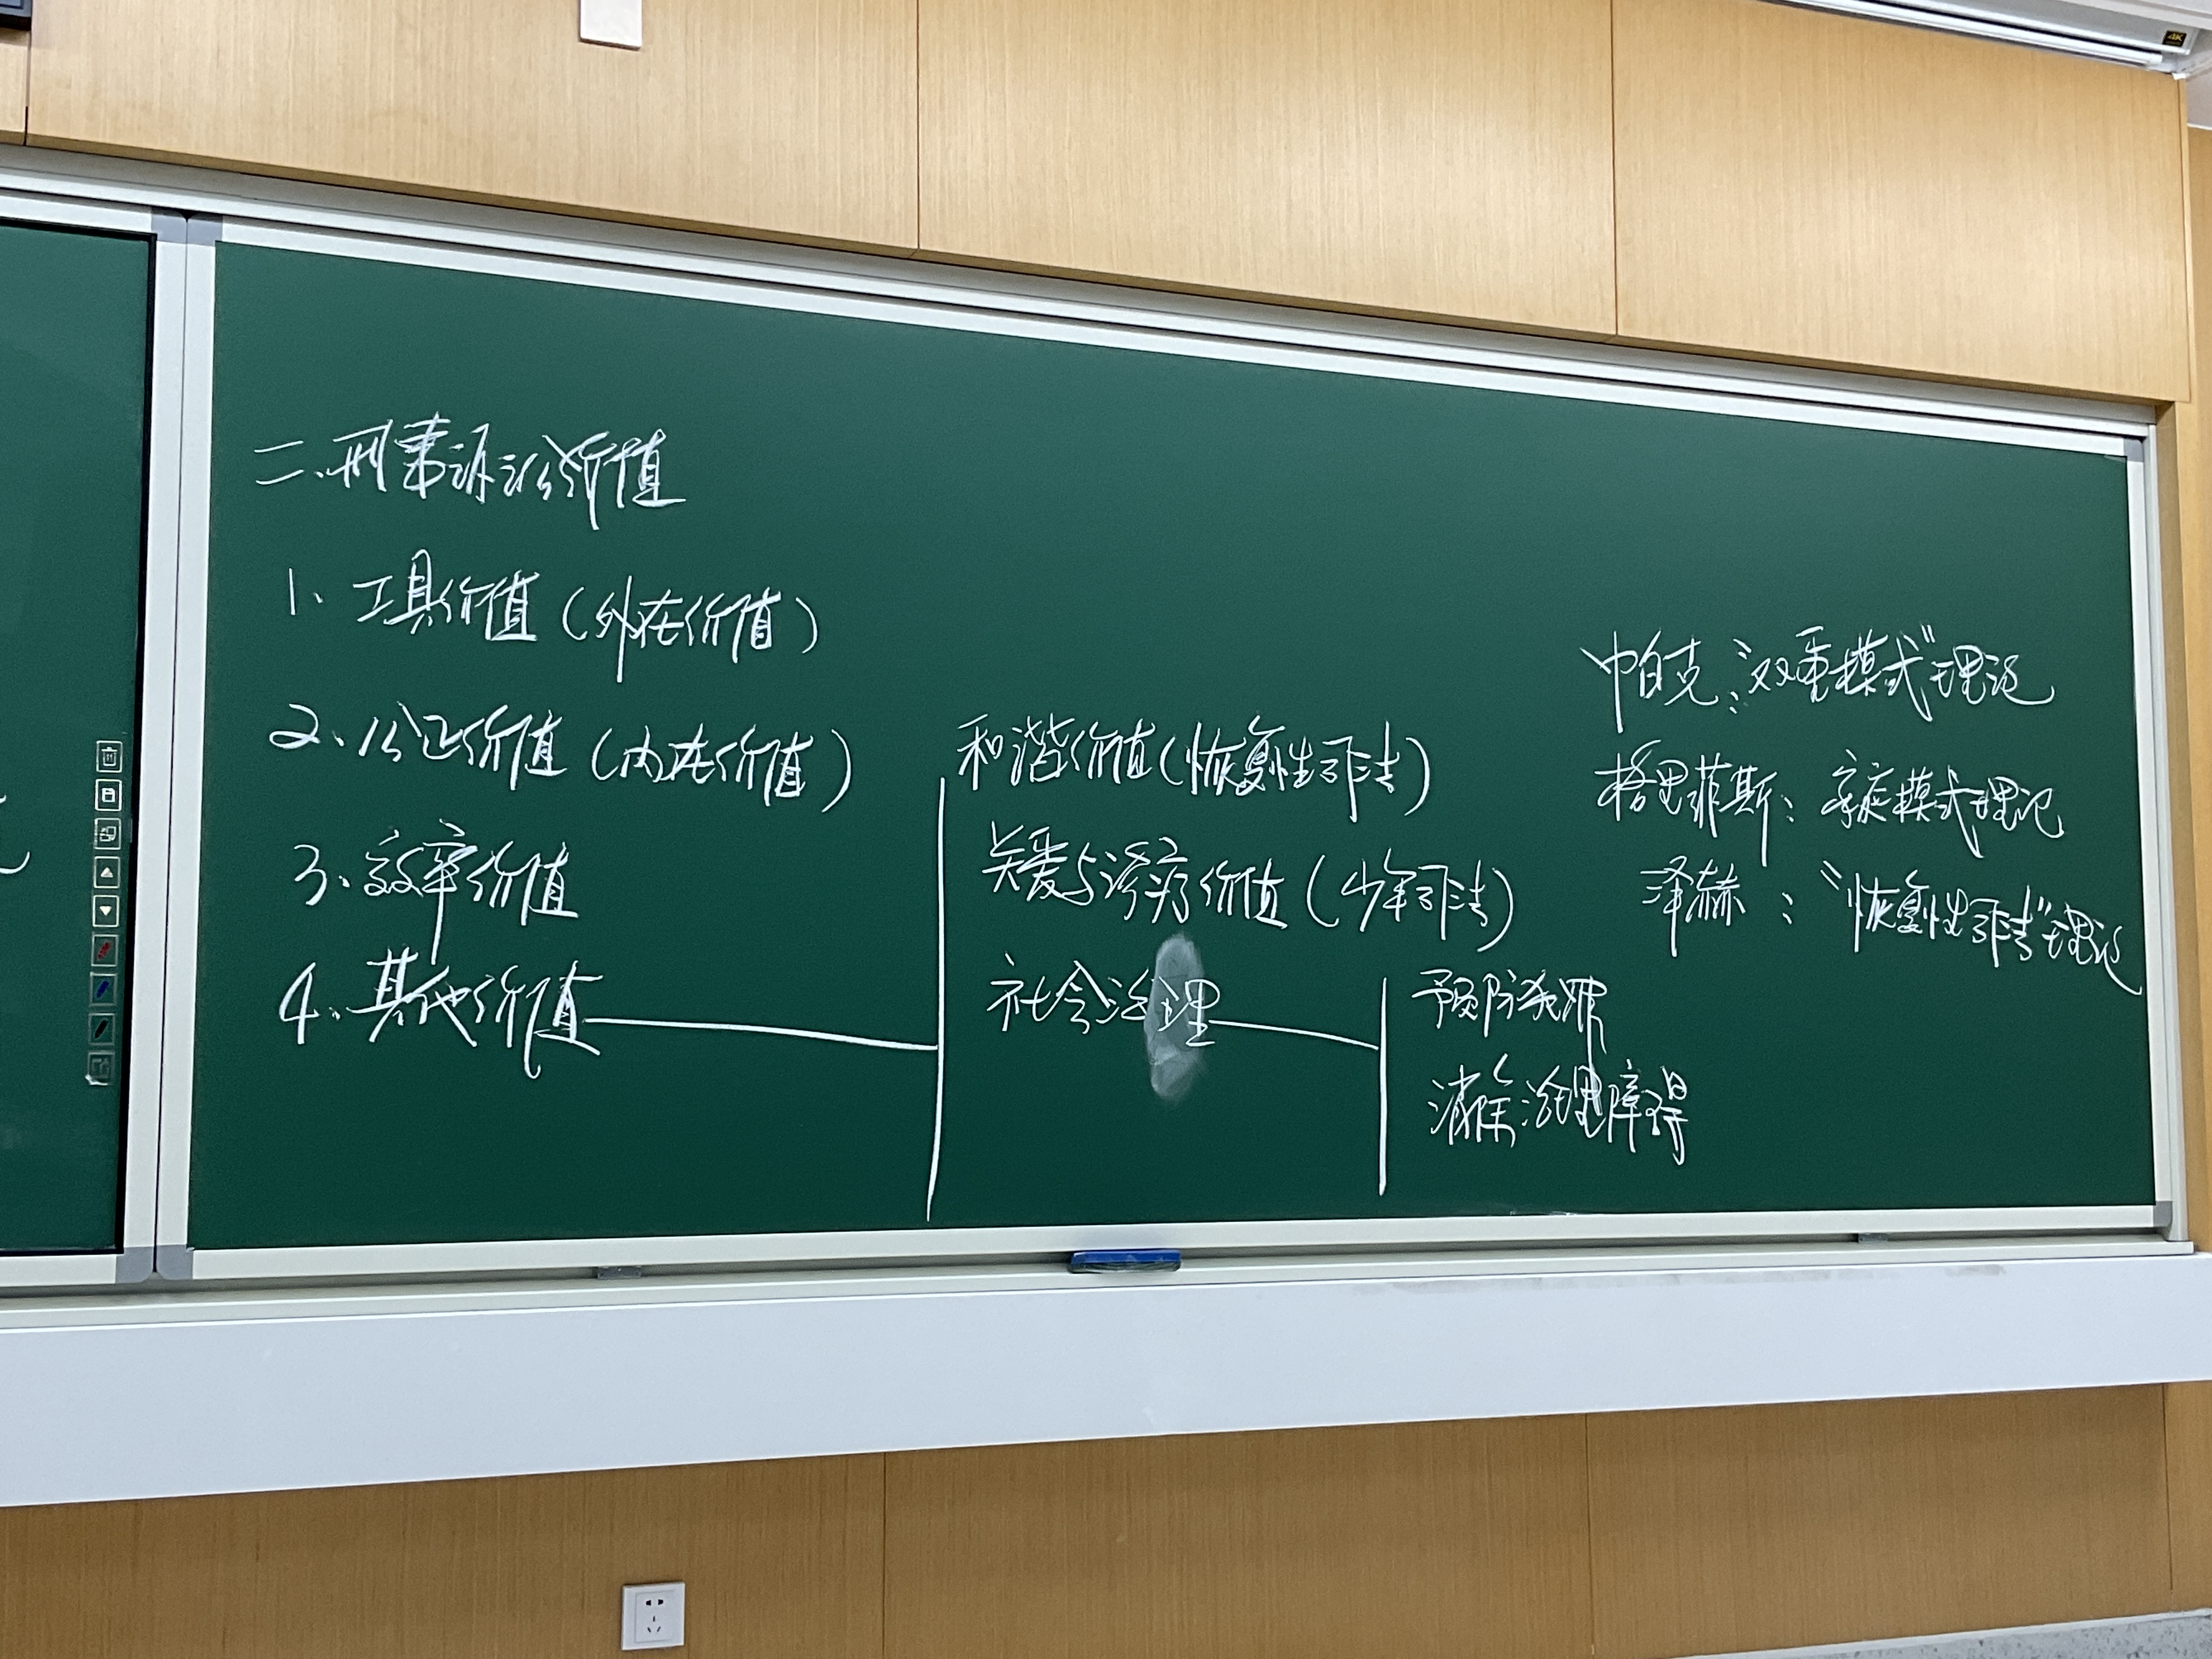 二、刑事诉讼价值
1、工具价值(外在价值)
2、公正价值(内在价值)
3、效率价值
4、其他价值
和谐价值(恢复性司法)
关爱与诊疗价值(少年司法)
社会治理
预防犯罪
消除治理障碍
帕克:"双重模式"理论
格里菲斯:家庭模式理论
泽赫:"恢复性司法"理论
4K